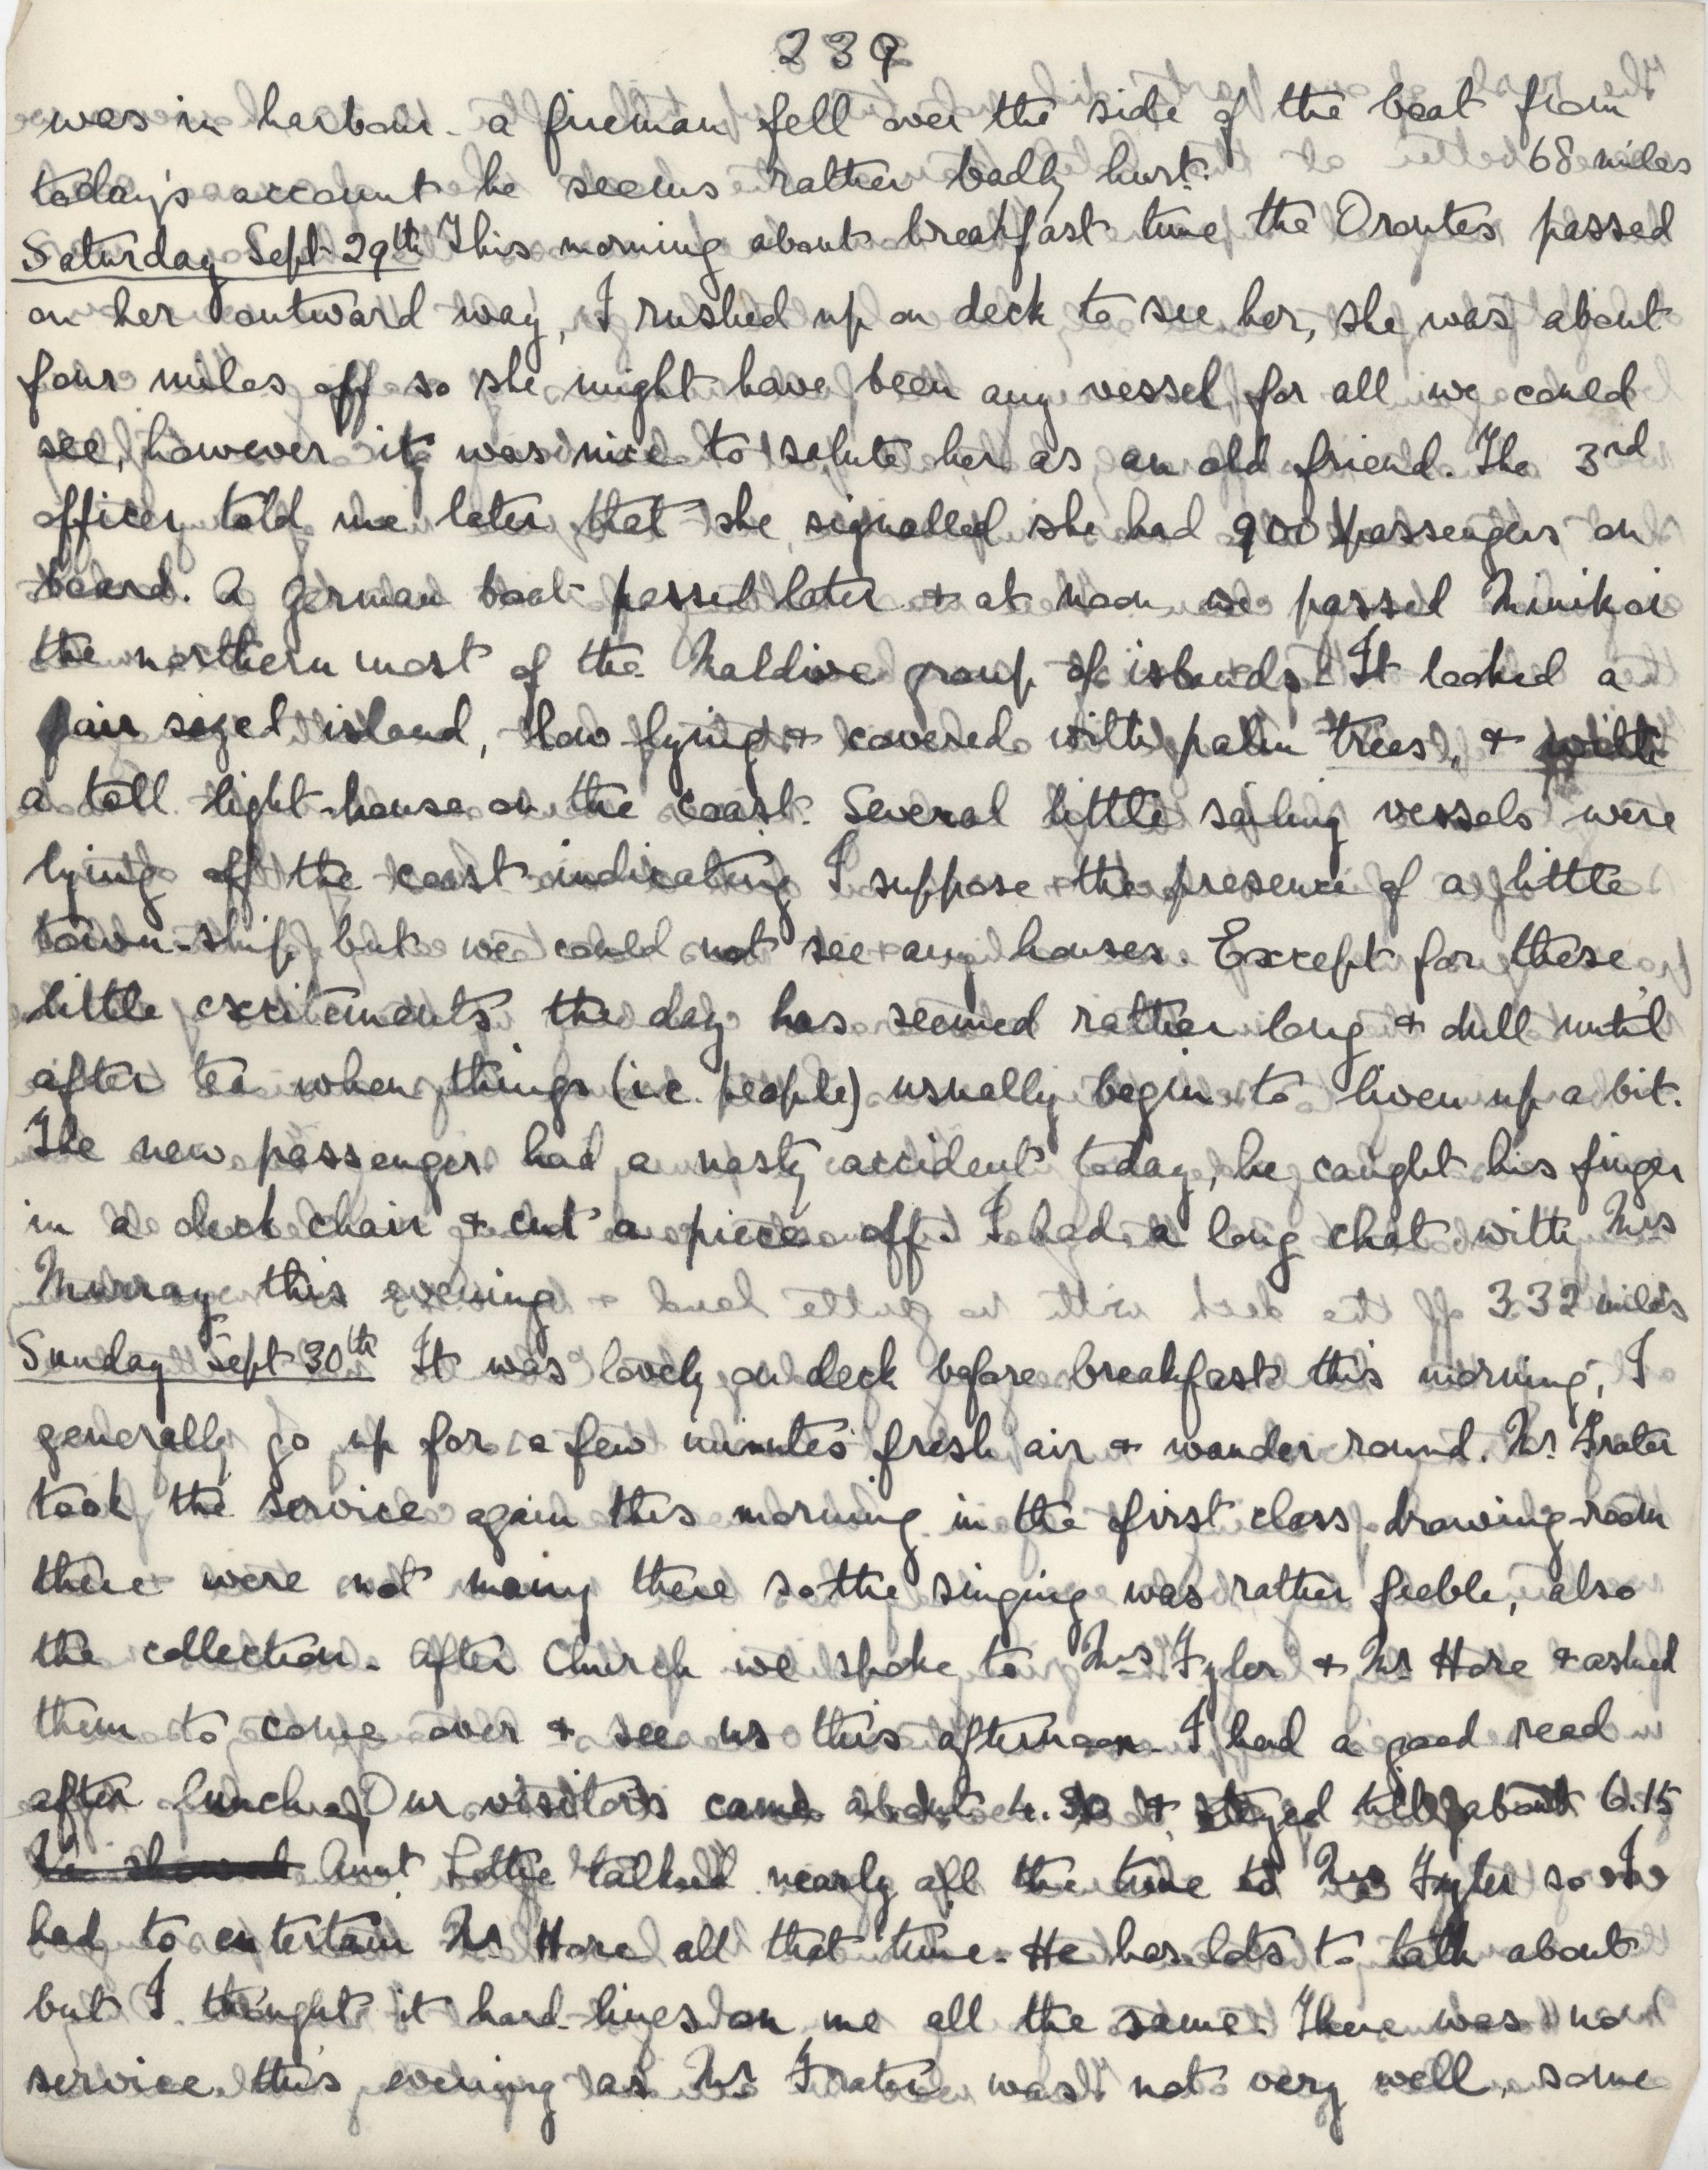 239
was in harbour - a fireman fell over the side of the boat from
today's account he seems rather badly hurt. 68 miles
Saturday Sept 29th This morning about breakfast time the Orontes passed
on her outward way, I rushed up on deck to see her, she was about
four miles off so she might have been any vessel for all we could
see, however it was nice to salute her as an old friend. The 3rd
officer told me later that she signalled she had 900 passengers on
board. A German boat passed later & at noon we passed Minikoi
the northern most of the Maldive group of islands. It looked a
fair sized island, low lying & covered with palm trees, & with
a tall light-house on the coast. Several little sailing vessels were
lying off the coast indicating I suppose the presence of a little
town-ship, but we could not see any houses. Except for these
little excitements the day has seemed rather long & dull until
after tea when things (i.e. people) usually begin to liven up a bit.
The new passenger had a nasty accident today, he caught his finger
in a deck chair & cut a piece off. I had a long chat with Mrs
Murray this evening 332 miles
Sunday Sept 30th It was lovely on deck before breakfast this morning, I
generally go up for a few minutes fresh air & wander round. Mr. Frater
took the service again this morning in the first class drawing-room
there were not many there so the singing was rather feeble, also
the collection. After Church we spoke to Mrs Fyler & Mr. Hore & asked
them to come over & see us this afternoon. I had a good read
after lunch. Our visitors came about 4.30 & stayed till about 6.15
We showed Aunt Lottie talked nearly all the time to Mrs Fyler so I
had to entertain Mr. Hore all that time. He has lots to talk about
but I thought it hard-lines on me all the same. There was no
service this evening as Mr Frater was not very well, some